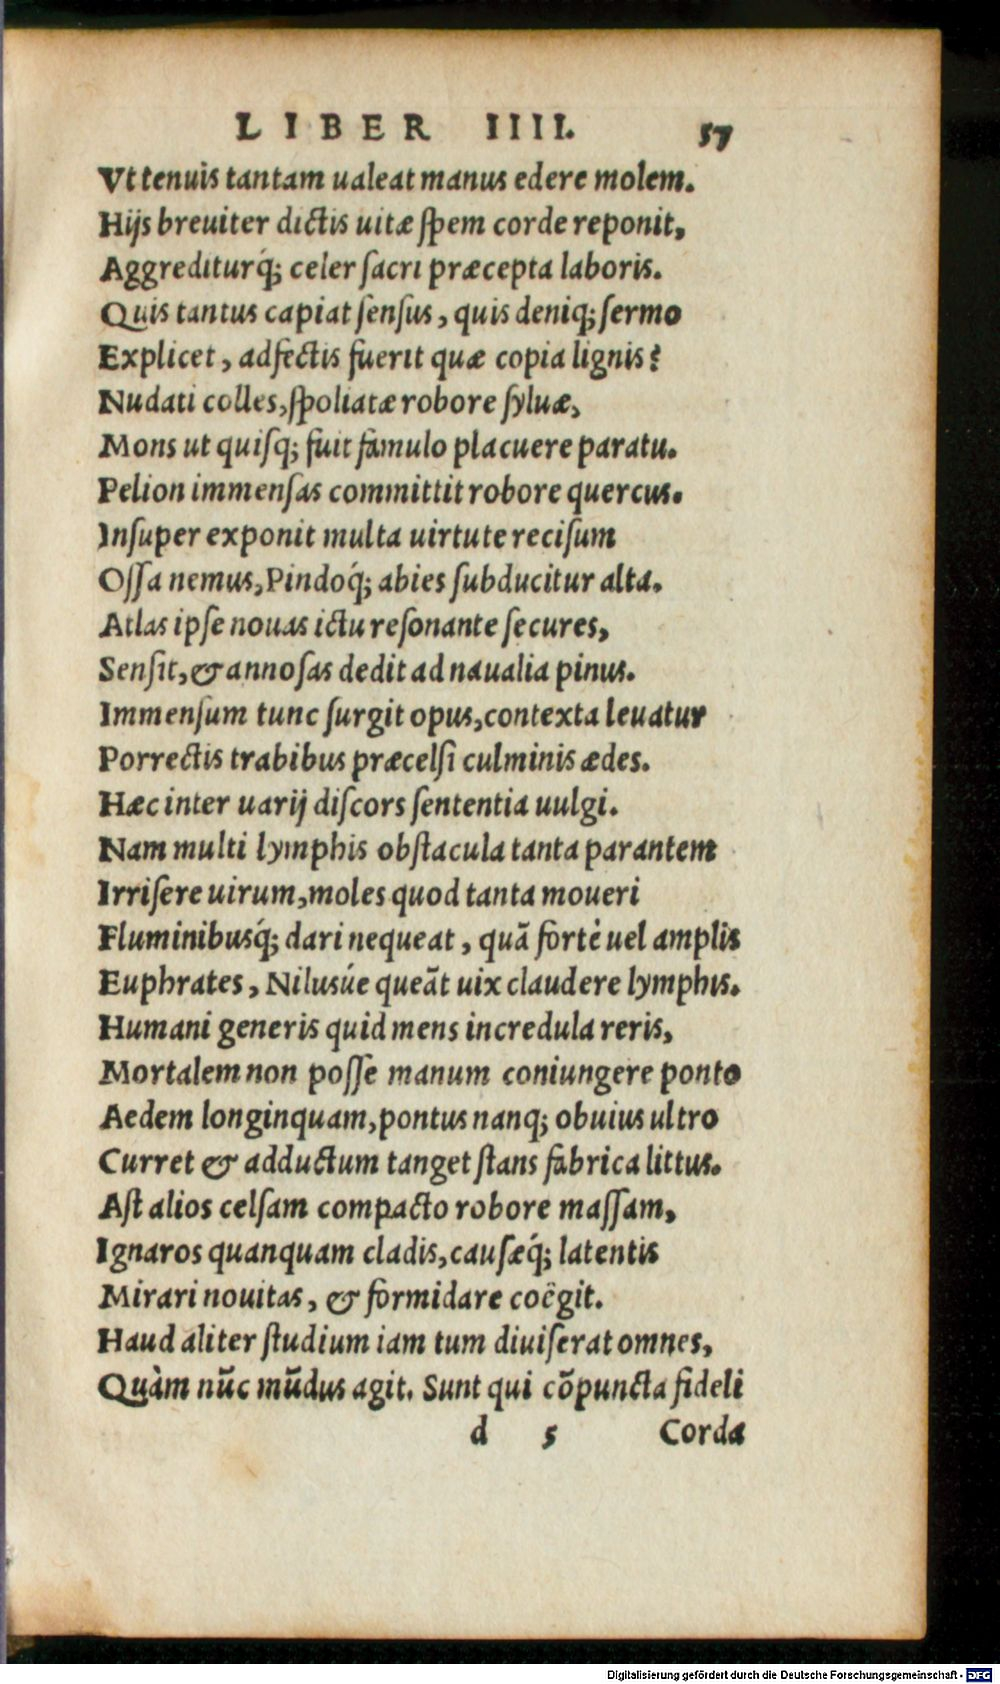 LIBER IIII. 57
Vt tenuis tantam ualeat manus edere molem.
Hijs breuiter dictis uitæ ſpem corde reponit,
Aggrediturq́; celer ſacri præcepta laboris.
Quis tantus capiat ſenſus, quis deniq; ſermo
Explicet, adfectis fuerit quæ copia lignis?
Nudati colles, ſpoliatæ robore ſyluæ,
Mons ut quiſq; fuit famulo placuere paratu.
Pelion immenſas committit robore quercus.
Inſuper exponit multa uirtute reciſum
Oſſa nemus, Pindoq́; abies ſubducitur alta.
Atlas ipſe nouas ictu reſonante ſecures,
Senſit, & annoſas dedit ad naualia pinus.
Immenſum tunc ſurgit opus, contexta leuatur
Porrectis trabibus præcelſi culminis ædes.
Hæc inter uarij diſcors ſententia uulgi.
Nam multi lymphis obſtacula tanta parantem
Irriſere uirum, moles quod tanta moueri
Fluminibusq́; dari nequeat, quã fortè uel amplis
Euphrates, Nilusúe queãt uix claudere lymphis.
Humani generis quid mens incredula reris,
Mortalem non poſſe manum coniungere ponto
Aedem longinquam, pontus nanq; obuius ultro
Curret & adductum tanget ſtans fabrica littus.
Aſt alios celſam compacto robore maſſam,
Ignaros quanquam cladis, cauſæq́; latentis
Mirari nouitas, & formidare coëgit.
Haud aliter ſtudium iam tum diuiſerat omnes,
Quàm nũc mũdus agit. Sunt qui cõpuncta fideli
d 5 Corda
Digitalisierung gefördert durch die Deutsche Forschungsgemeinschaft - DFG